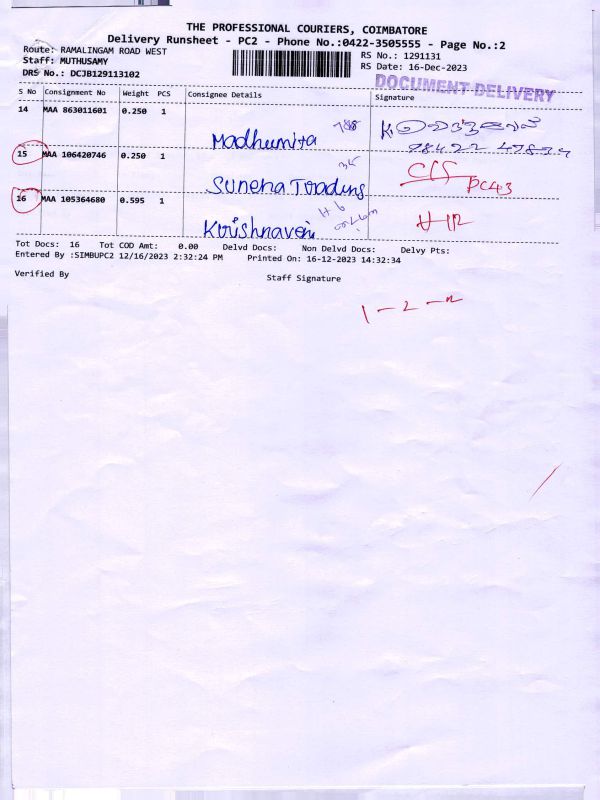 THE PROFESSIONAL COURIERS, COIMBATORE
Delivery Runsheet - PC2 - Phone No.:0422-3505555 - Page No.:2
Route: RAMALINGAM ROAD WEST
RS No.: 1291131
Staff: MUTHUSAMY
RS Date: 16-Dec-2023
DRS No.: DCJB129113102
DOCUMENT DELIVERY
S No Consignment No Weight PCS Consignee Details Signature
14 MAA 863011601 0.250 1 Madhumita
15 MAA 106420746 0.250 1 Suneha Trading 35 PC43
16 MAA 105364680 0.595 1 Krishnaveni
Tot Docs: 16 Tot COD Amt: 0.00 Delvd Docs: Non Delvd Docs: Delvy Pts:
Entered By :SIMBUPC2 12/16/2023 2:32:24 PM Printed On: 16-12-2023 14:32:34
Verified By
Staff Signature